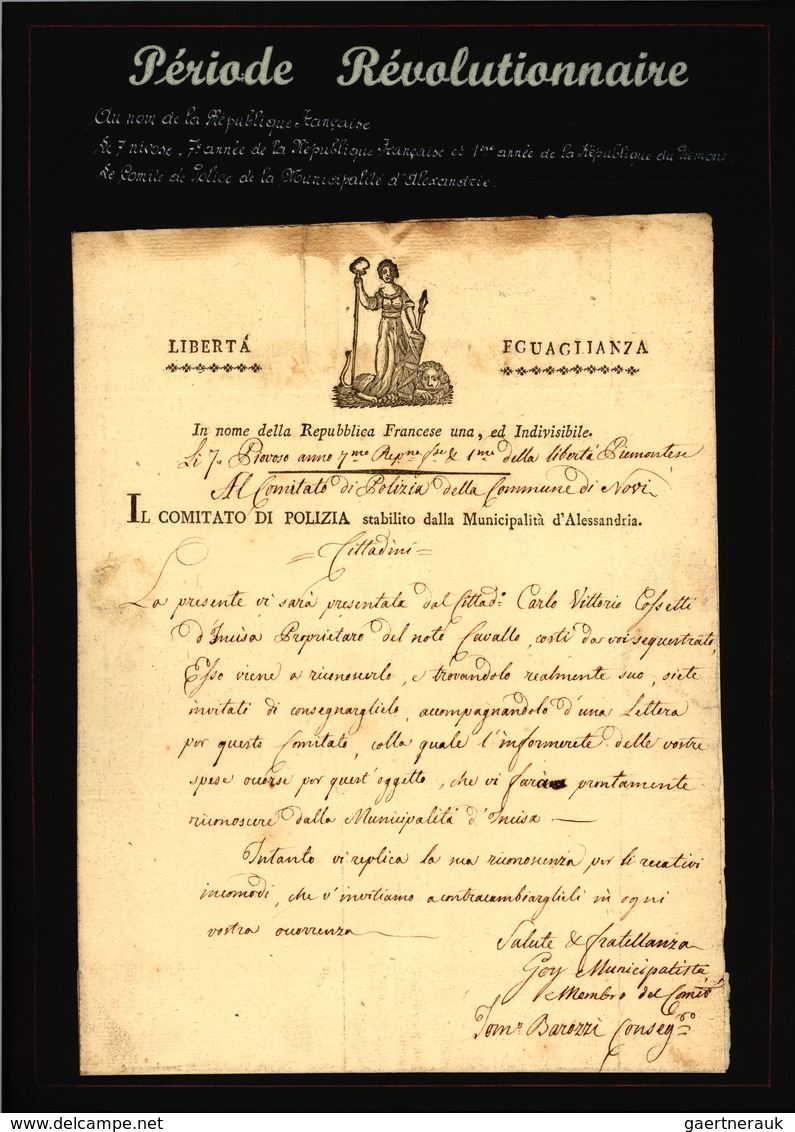 Période Révolutionnaire
Au nom de la République Française
Le 7 nivose, 7e année de la République Française et 1ère année de la République du Piemont.
Le Comité de Police de la Municipalité d'Alexandrie.
LIBERTÁ EGUAGLIANZA
In nome della Repubblica Francese una, ed Indivisibile.
Li 7. Piovoso anno 7.mo Rep.na f.se & 1.mo della libertà Piemontese
Al Comitato di Polizia della Commune di Novi
IL COMITATO DI POLIZIA stabilito dalla Municipalità d'Alessandria.
= Cittadini =
La presente vi sarà presentata dal Cittad.o Carlo Vittorio Cossetti
d'Incisa Proprietaro del noto Cavallo, costì da voi sequestrato,
Esso viene a riconoscerlo, e trovandolo realmente suo, siete
invitati di consegnarglielo, accompagnandolo d'una Lettera
per questo Comitato, colla quale l'informerete delle vostre
spese occorse per quest'oggetto, che vi farà prontamente
riconoscere dalla Municipalità d'Incisa —
Intanto vi replica la sua riconoscenza per li recativi
incomodi, che v'invitiamo a contracambiarglieli in ogni
vostra occorrenza —
Salute & fratellanza
Goy Municipalista
Membro del Comit.o
Tom.o Barozzi Conseg.ro
delcampe.net gaertnerauk